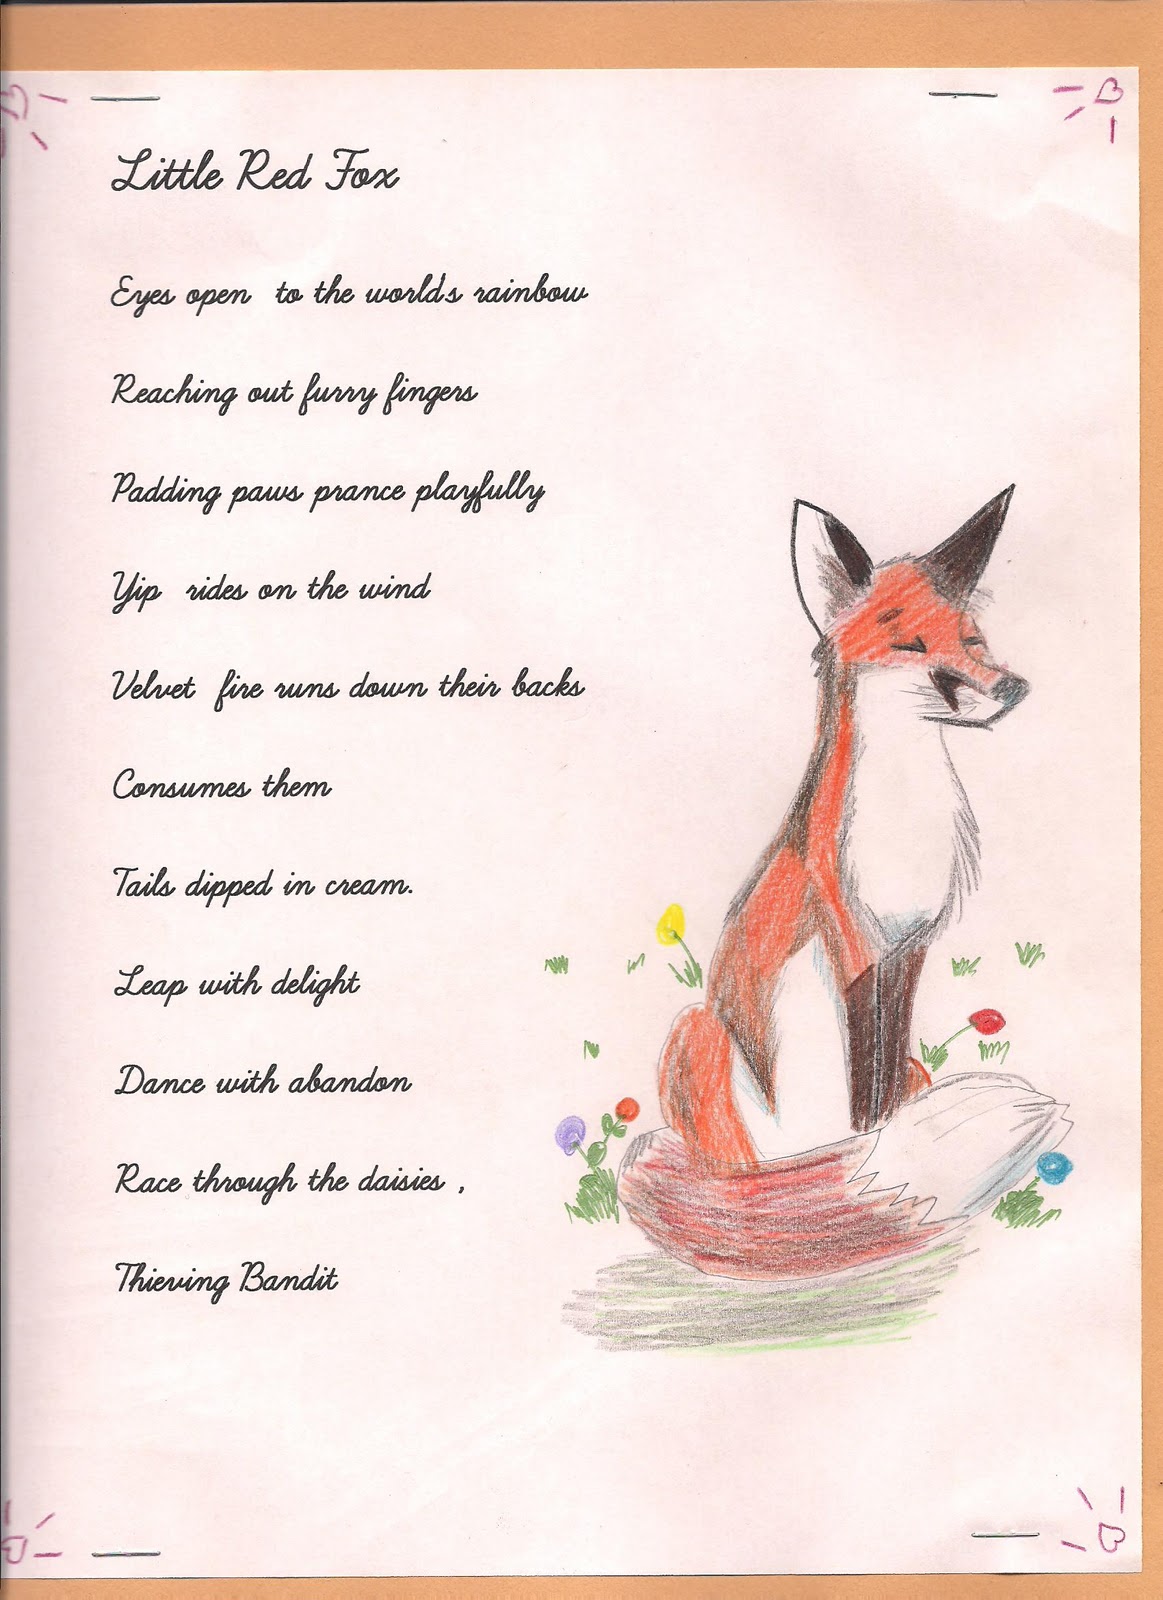 Little Red Fox
Eyes open to the world's rainbow
Reaching out furry fingers
Padding paws prance playfully
Yip rides on the wind
Velvet fire runs down their backs
Consumes them
Tails dipped in cream.
Leap with delight
Dance with abandon
Race through the daisies ,
Thieving Bandit